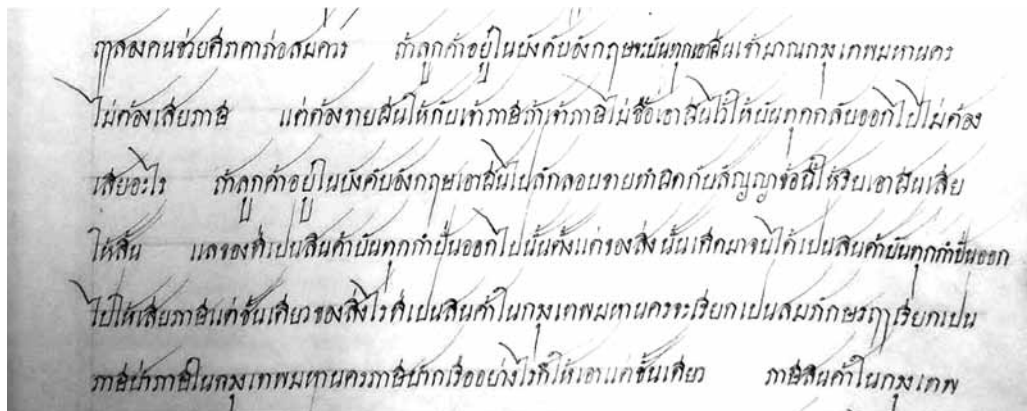 ฤาสองคนช่วยตีราคาก่อสมควร ถ้าลูกค้าอยู่ในบังคับอังกฤษจะบันทุกเอาฝิ่นเข้ามาณกรุงเทพมหานคร
ไม่ต้องเสียภาษี แต่ต้องขายฝิ่นให้กับเจ้าภาษีถ้าเจ้าภาษีไม่ซื้อเอาฝิ่นไว้ให้บันทุกกลับออกไปไม่ต้อง
เสียอะไร ถ้าลูกค้าอยู่ในบังคับอังกฤษเอาฝิ่นไปลักลอบขายทำผิดกับสัญญาข้อนี้ให้ริบเอาฝิ่นเสีย
ให้สิ้น แลของที่เปนสินค้าบันทุกกำปั่นออกไปนั้นตั้งแต่ของสิ่งนั้นเกิดมาจนได้เปนสินค้าบันทุกกำปั่นออก
ไปให้เสียภาษีแต่ชั้นเดียวของสิ่งไรที่เปนสินค้าในกรุงเทพมหานครจะเรียกเปนสมภักษรฤาเรียกเปน
ภาษีป่าภาษีในกรุงเทพมหานครภาษีปากเรืออย่างไรก็ให้เอาแต่ชั้นเดียว ภาษีสินค้าในกรุงเทพ